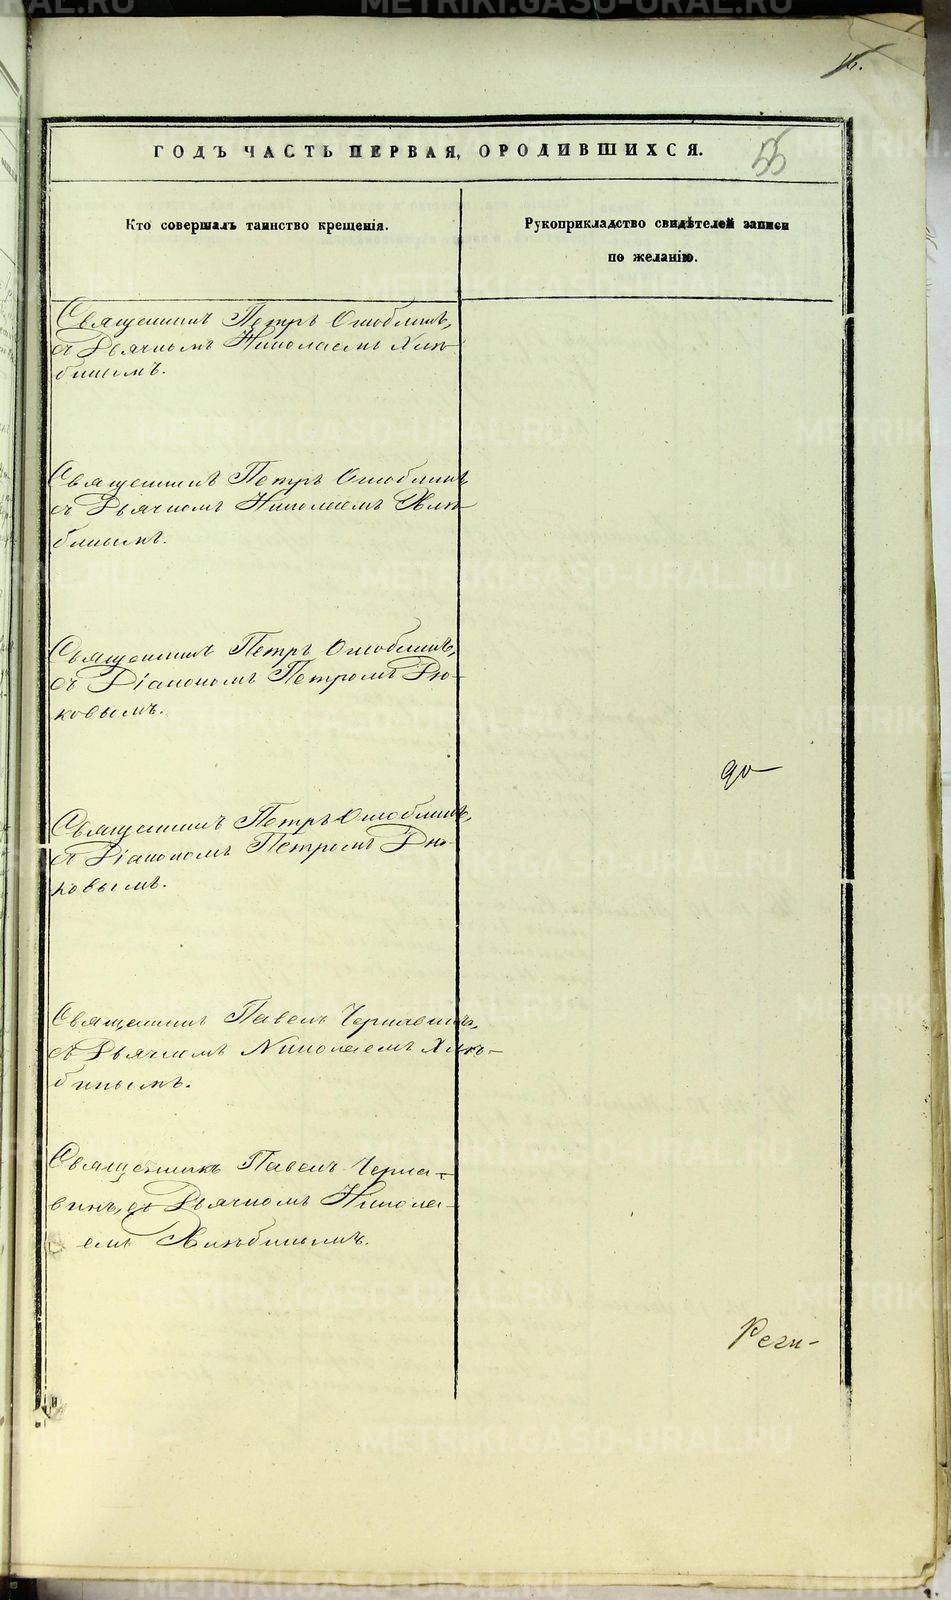 METRIKI.GASO-URAL.RU
ГОДЪ ЧАСТЬ ПЕРВАЯ, О РОДИВШИХСЯ.
55
Кто совершалъ таинство крещенія.
Рукоприкладство свидѣтелей записи
по желанію.
Священникъ Петръ Оглоблинъ,
съ Дьячкомъ Николаемъ Хлѣ-
бинымъ.
Священникъ Петръ Оглоблинъ
съ Дьячкомъ Николаемъ Хлѣ-
бинымъ.
Священникъ Петръ Оглоблинъ,
съ Діакономъ Петромъ Дю-
ковымъ.
до-
Священникъ Петръ Оглоблинъ,
съ Діакономъ Петромъ Дю-
ковымъ.
Священникъ Павелъ Чернавинъ,
съ Дьячкомъ Николаемъ Хлѣ-
бинымъ.
Священникъ Павелъ Черна-
винъ, съ Дьячкомъ Никола-
емъ Хлѣбинымъ.
Реги-